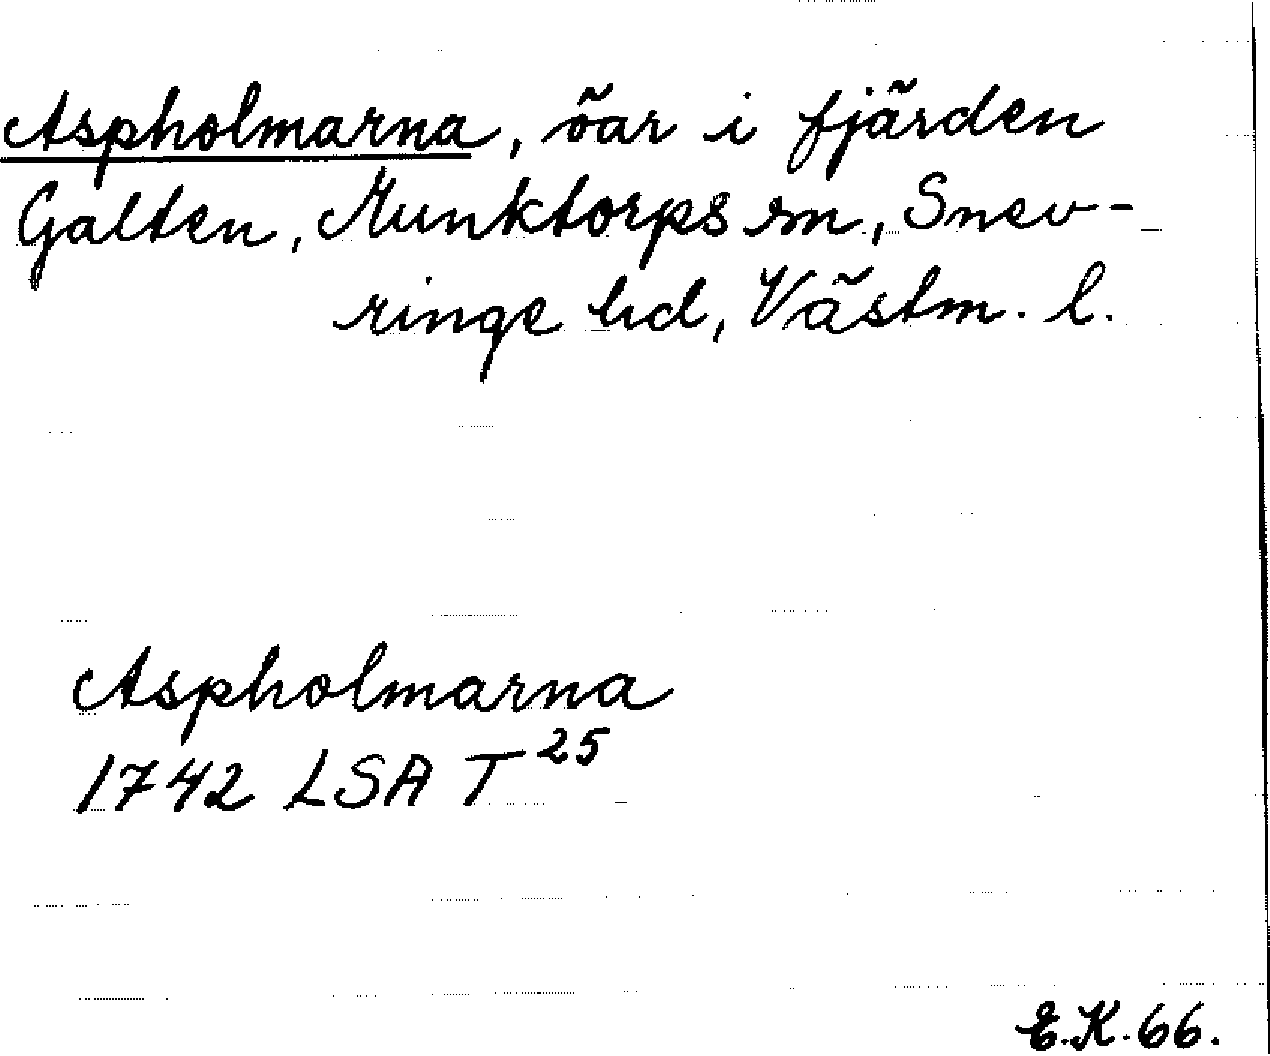 Aspholmarna, öar i fjärden
Galten, Munktorps sn, Snev-
ringe hd, Västm. l.
Aspholmarna
1742 LSA T 25
E.K. 66.